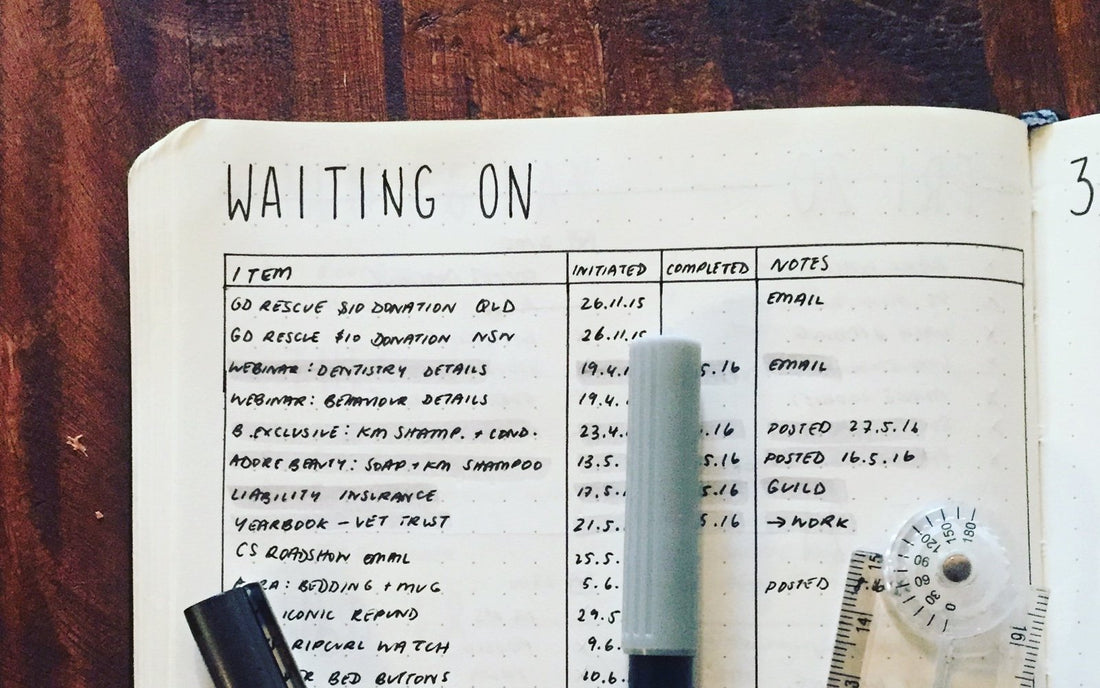 WAITING ON
3
ITEM INITIATED COMPLETED NOTES
GD RESCUE $10 DONATION QLD 26.11.15 EMAIL
GD RESCUE $10 DONATION NSW 26.11.15
WEBINAR: DENTISTRY DETAILS 19.4. 5.16 EMAIL
WEBINAR: BEHAVIOUR DETAILS 19.4.
B.EXCLUSIVE: KM SHAMP. + COND. 23.4. .16 POSTED 27.5.16
ADORE BEAUTY: SOAP + KM SHAMPOO 13.5. 5.16 POSTED 16.5.16
LIABILITY INSURANCE 17.5. 5.16 GUILD
YEARBOOK - VET TRUST 21.5. 5.16 → WORK
CS ROADSHOW EMAIL 25.5.
: BEDDING + MUG 5.6. POSTED
ICONIC REFUND 29.5
RIPCURL WATCH 9.6.
BED BUTTONS 10.6.
180 150 120 90 60 30 0
15 14 13
16